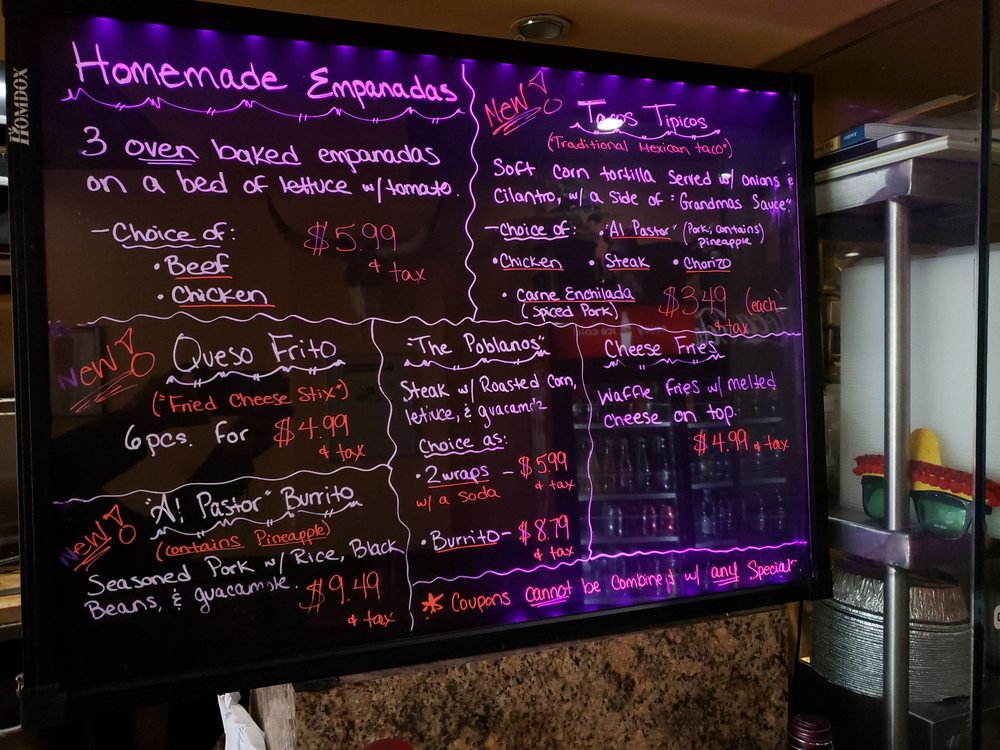 HOMDOX
Homemade Empanadas
3 oven baked empanadas
on a bed of lettuce w/ tomato.
- Choice of:
• Beef
• Chicken
$5.99
& tax
New!
Tacos Tipicos
(Traditional Mexican taco")
Soft corn tortilla served w/ onions &
Cilantro, w/ a side of "Grandmas Sauce"
- Choice of: • "Al Pastor" (Pork, contains pineapple)
• Chicken • Steak • Chorizo
• Carne Enchilada
(Spiced Pork)
$3.49 (each)
& tax
New!
Queso Frito
("Fried Cheese Stix")
6 pcs. for $4.99
& tax
"The Poblanos"
Steak w/ Roasted Corn,
lettuce, &
Choice as:
• 2 wraps - $5.99
& tax
w/ a soda
• Burrito - $8.79
& tax
Cheese Fries
Waffle fries w/ melted
cheese on top.
$4.99 & tax
New!
"Al Pastor" Burrito
(contains Pineapple)
Seasoned Pork w/ Rice, Black
Beans, & guacamole.
$9.49
& tax
* Coupons cannot be combined w/ any Special.